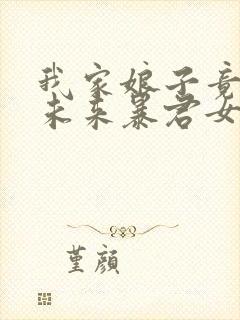 我家娘子竟
未来暴君女
堇颜